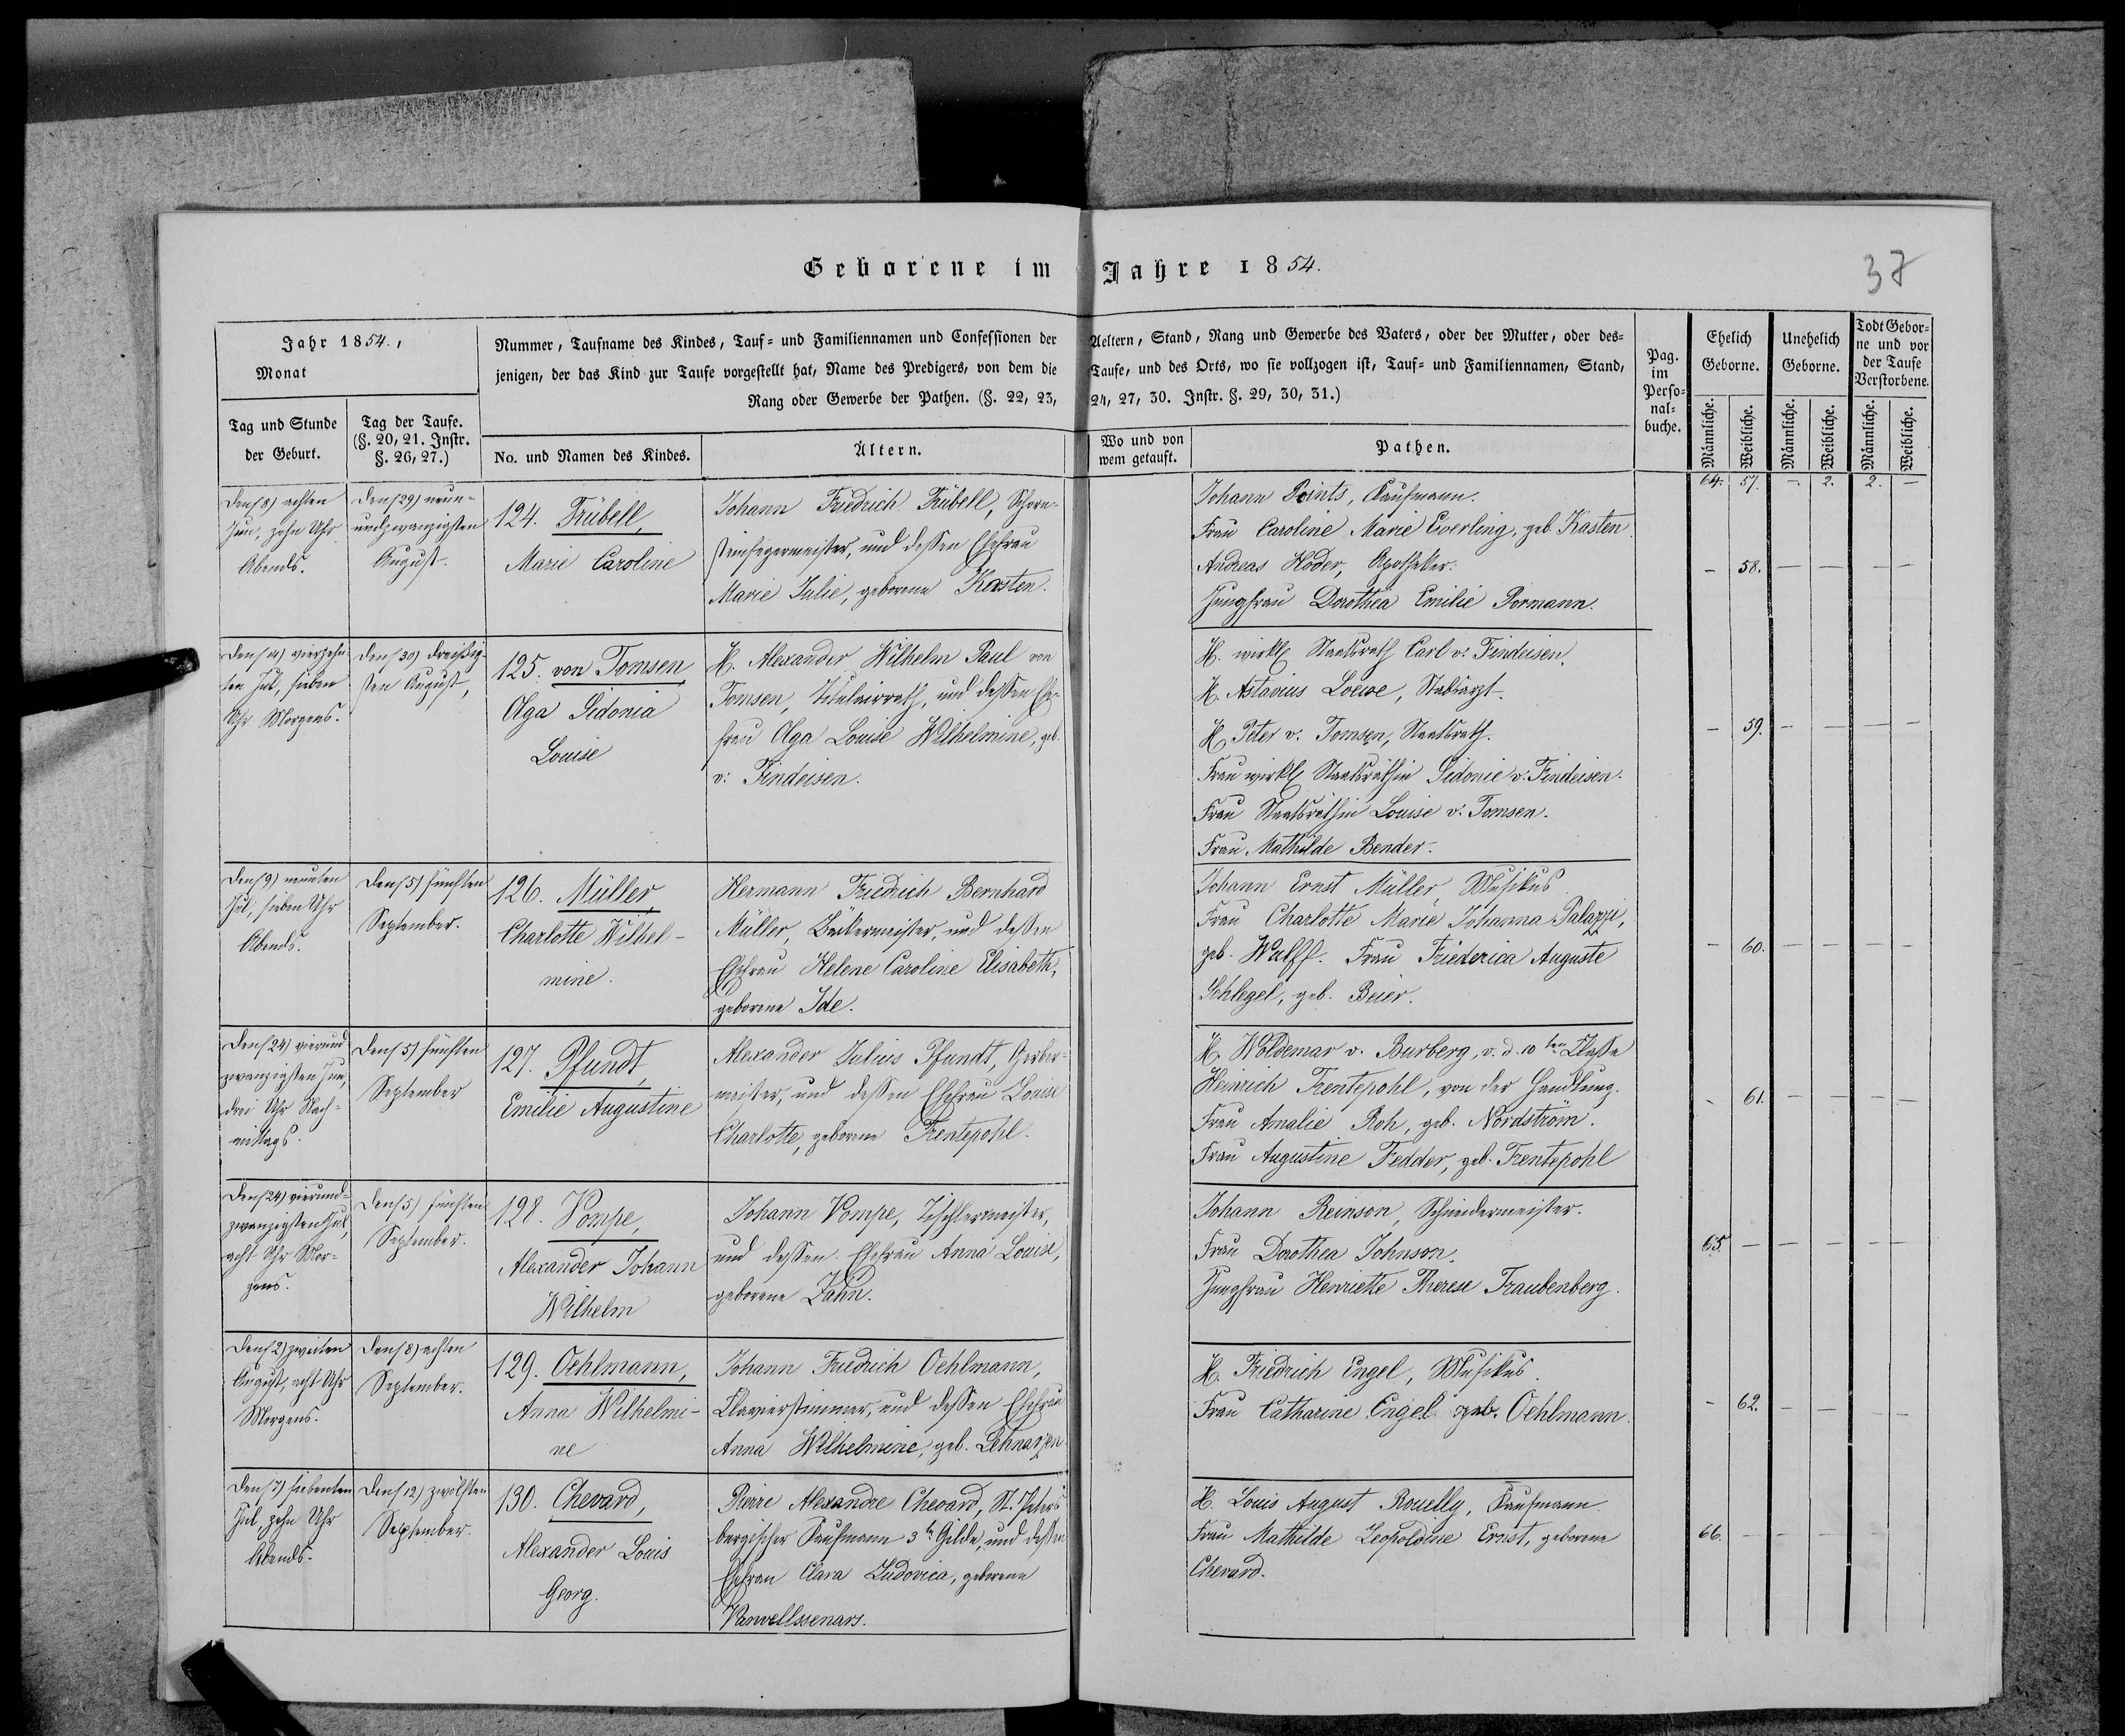 Geborene im Jahre 1854.
37
Jahr 1854.,
Monat
Tag und Stunde
der Geburt.
Tag der Taufe.
(§. 20, 21. Instr.
§. 26, 27.)
Nummer, Taufname des Kindes, Tauf- und Familiennamen und Confessionen der Aeltern, Stand, Rang und Gewerbe des Vaters, oder der Mutter, oder des-
jenigen, der das Kind zur Taufe vorgestellt hat, Name des Predigers, von dem die Taufe, und des Orts, wo sie vollzogen ist, Tauf- und Familiennamen, Stand,
Rang oder Gewerbe der Pathen. (§. 22, 23, 24, 27, 30. Instr. §. 29, 30, 31.)
No. und Namen des Kindes.
Ältern.
Wo und von
wem getauft.
Pathen.
Pag.
im
Perso-
nal-
buche.
Ehelich
Geborne.
Unehelich
Geborne.
Todt Gebor-
ne und vor
der Taufe
Verstorbene.
Männliche.
Weibliche.
Männliche.
Weibliche.
Männliche.
Weibliche.
64. 57. -. 2. 2. -
Den (8) achten
Jun, zehn Uhr
Abends.
Den (29) neun-
undzwanzigsten
August.
124. Trübell,
Marie Caroline
Johann Friedrich Trübell, Schorn-
steinfegermeister, und dessen Ehefrau
Marie Julie, geborene Kasten.
Johann Points, Kaufmann.
Frau Caroline Marie Everling, geb. Kasten.
Andreas Höder, Apotheker.
Jungfrau Dorothea Emilie Pormann.
- 58. - - - -
Den (14) vierzehn-
ten Jul, sieben
Uhr Morgens.
Den (30) dreißig-
sten August,
125. von Tomsen
Olga Sidonia
Louise
H. Alexander Wilhelm Paul von
Tomsen, Titulairrath, und dessen Ehe-
frau Olga Louise Wilhelmine, geb.
v: Findeisen.
H. wirkl Staatsrath Carl v: Findeisen.
H. Astavius Loewe, Stabsarzt.
H. Peter v. Tomsen, Staatsrath.
Frau wirkl Staatsräthin Sidonie v: Findeisen.
Frau Staatsräthin Louise v: Tomsen.
Frau Mathilde Bender.
- 59. - - - -
Den (9) neunten
Jul, sieben Uhr
Abends.
Den (5) fünften
September.
126. Müller,
Charlotte Wilhel-
mine.
Hermann Friedrich Bernhard
Müller, Bäckermeister, und dessen
Ehefrau Helene Caroline Elisabeth,
geborene Ide.
Johann Ernst Müller, Musikus.
Frau Charlotte Marie Johanna Palazzi,
geb. Wulff. Frau Friederica Auguste
Schlegel, geb. Beier.
- 60. - - - -
Den (24) vierund-
zwanzigsten Jun,
drei Uhr Nach-
mittags.
Den (5) fünften
September
127. Pfundt,
Emilie Augustine
Alexander Julius Pfundt, Gerber-
meister, und dessen Ehefrau Louise
Charlotte, geborene Trentepohl.
H. Woldemar v. Burberg, v. d. 10ten Classe
Heinrich Trentepohl, von der Handlung.
Frau Amalie Roh, geb. Nordström.
Frau Augustine Fedder, geb. Trentepohl
- 61. - - - -
Den (24) vierund-
zwanzigsten Jul,
acht Uhr Mor-
gens.
Den (5) fünften
September.
128. Pompe,
Alexander Johann
Wilhelm
Johann Pompe, Tischlermeister,
und dessen Ehefrau Anna Louise,
geborene Zahn.
Johann Reinson, Schneidermeister.
Frau Dorothea Johnson.
Jungfrau Henriette Therese Traubenberg.
65. - - - - -
Den (2) zweiten
August, acht Uhr
Morgens.
Den (8) achten
September.
129. Oehlmann,
Anna Wilhelmi-
ne
Johann Friedrich Oehlmann,
Clavierstimmer, und dessen Ehefrau
Anna Wilhelmine, geb.
H. Friedrich Engel, Musikus.
Frau Catharine Engel geb. Oehlmann.
- 62. - - - -
Den (7) siebenten
Jul, zehn Uhr
Abends.
Den (12) zwölften
September.
130. Chevard,
Alexander Louis
Georg.
Pierre Alexandre Chevard, St. Peters-
burgischer Kaufmann 3ter Gilde, und dessen
Ehefrau Clara Ludovica, geborene
H. Louis August Rouelly, Kaufmann.
Frau Mathilde Leopoldine Ernst, geborene
Chevard.
66. - - - - -